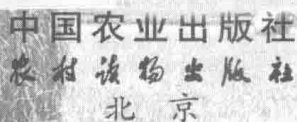 中国农业出版社
农村读物出版社
北 京